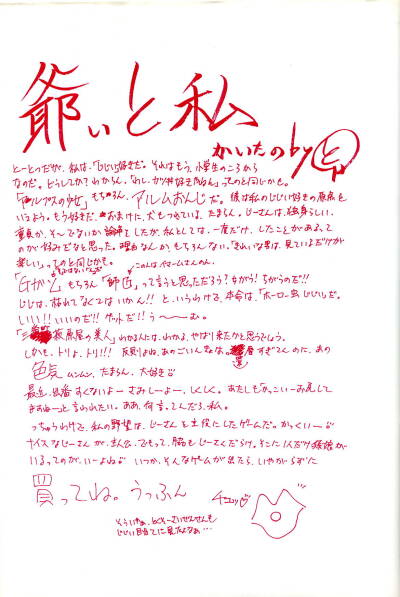 爺ぃと私
かいたのby
とーとつだが、私は、「じじい」好きだ。それはもう、小学生のころから
なのだ。どうしてか?わからん、「わし、カツ丼好きやねん」ってのと同じかも。
「アルプスの少女」もちろん、アルムおんじだ。彼は私のじじい好きの原点と
いうよう。もう好きだ、おまけに、犬もつれている、たまらん。じーさんは、独身らしい。
童貞か、そーでないか論争をしたが、私としては、一度だけ、したことがあるって
のが好みだなと思った。理由なんか、もちろんない。「きれいな男は、見ているだけが
楽しい」ってのと同じかな。
このんはイヤームさんのん。
「Gガン」もちろん「師匠」って言うと思っただろう?ちがう!ちがうのだ!!
じじは、枯れてなくてはいかん!!というわけで、本命は、「ボーロー虫じじい」だ。
しいい!!いいのだ!!ゲットだ!!う〜〜む。
萩原屋の美人」わかる人には、わかる、やはり来たかと思うでしょう。
しかも、トリよ、トリ!!! 反則よね、あのごいんきょは。すぎてんのに、あの
色気 ムンムン、たまらん、大好き
最近、出番すくないよーさみしーよー、しくしく。あたしもかっこいーお尻して
ますねーと言われたい。ああ、何言ってんだろ、私。
っちゅうわけで、私の野望は、じーさんを主役にしたゲームだ。かっくいー
ナイスなじーさんが、主人公、でもって、脇もじーさんだらけ。そこに1人だけ孫娘が
いるってのが、いーよね いつか、そんなゲームが出たら、いやがらずに
買ってね。うっふん
チュッ
そういやぁ、じじい目当てに見たよなぁ…